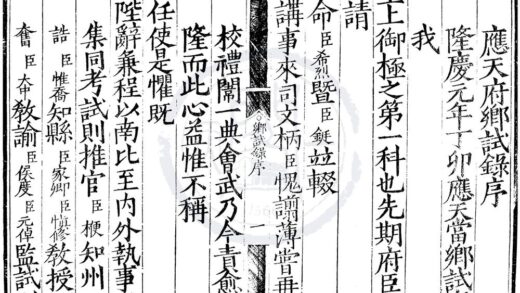 應天府鄉試錄序
隆慶元年丁卯應天當鄉試
我
上御極之第一科也先期府臣
請
命臣希烈暨臣鋌並輟
講事來司文柄臣愧謭薄嘗再
鄉試錄序 一
校禮闈一典會武乃今責愈
隆而此心益惟不稱
任使是懼既
陛辭兼程以南比至內外執事
集同考試則推官臣楩知州
誥臣惟喬知縣臣家卿臣慎修教授
奮臣教諭臣度臣元倬監試